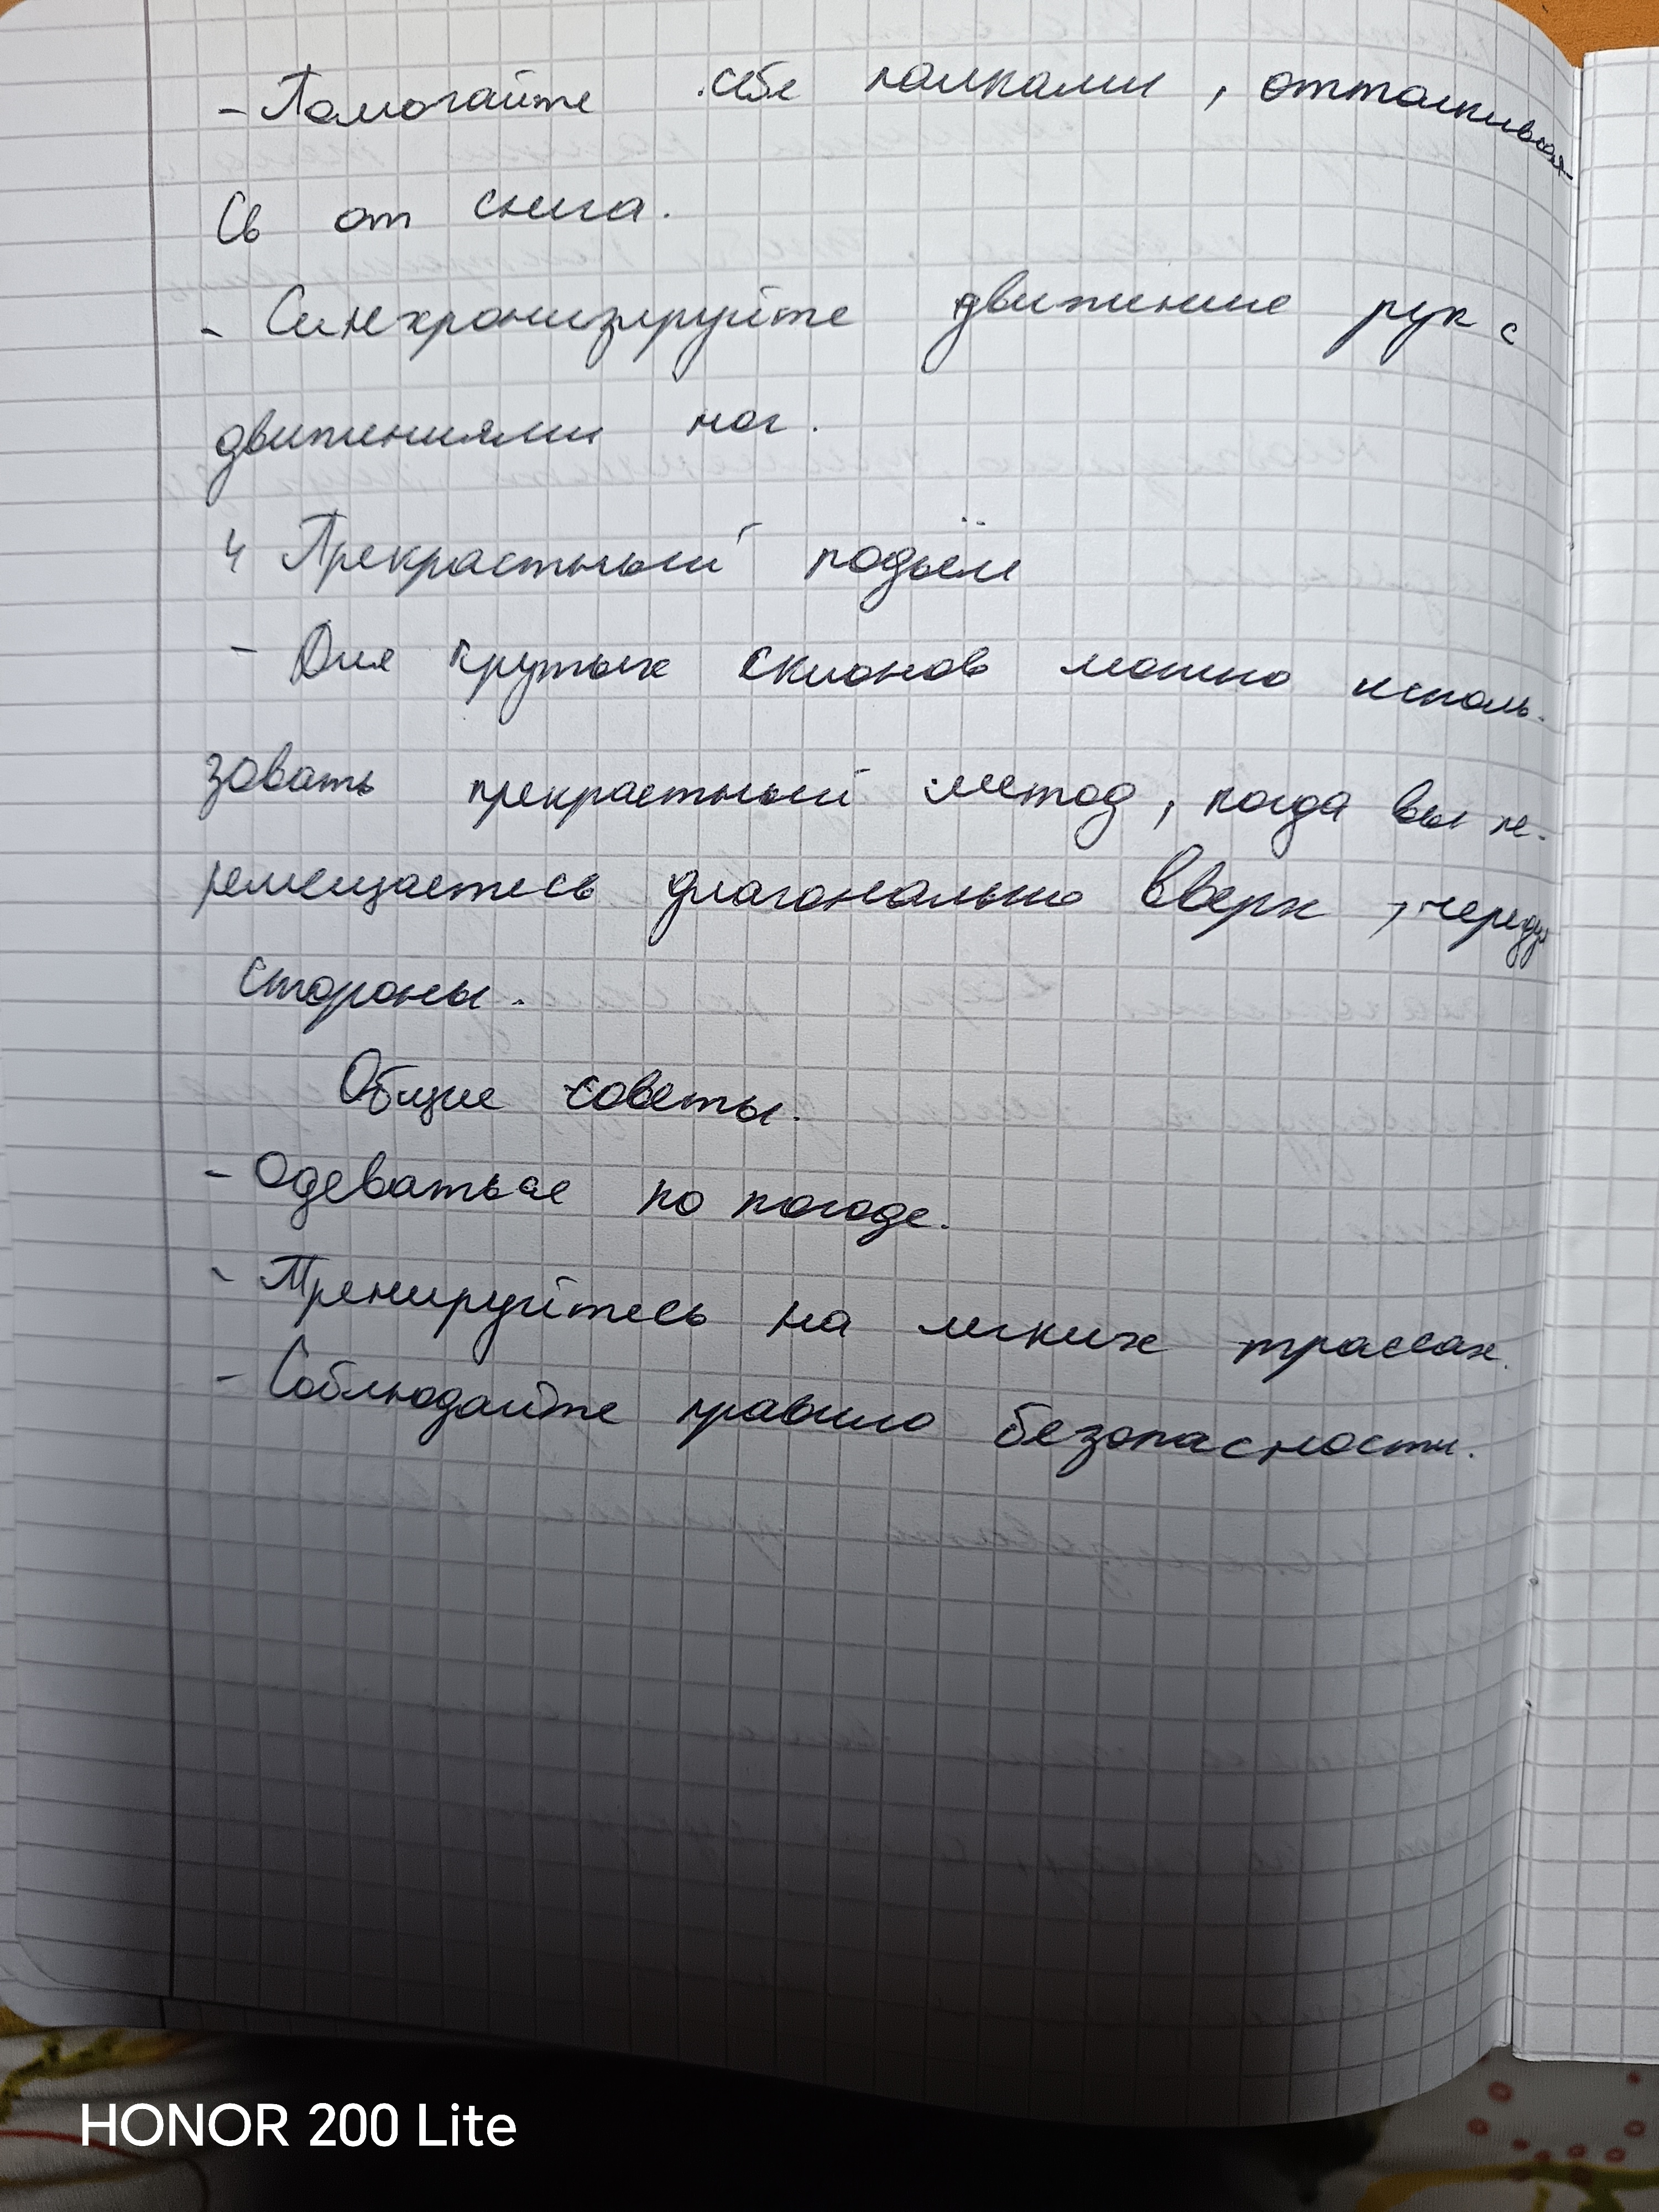 - Помогайте себе палками, отталкивая-
сь от снега.
- Синхронизируйте движение рук с
движениями ног.
4 Прекрастный подъём
- Для крутых склонов можно исполь-
зовать прекрастный метод, когда вы пе-
ремещаетесь диагонально вверх, чередуя
стороны.
Общие советы.
- Одеваться по погоде.
- Тренируйтесь на легких трассах.
- Соблюдайте правило безопасности.
HONOR 200 Lite